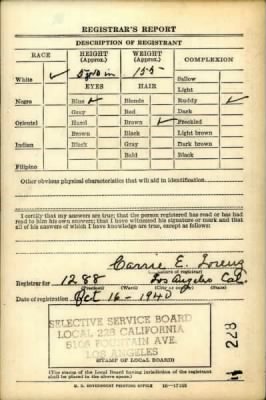 REGISTRAR'S REPORT
DESCRIPTION OF REGISTRANT
RACE HEIGHT (Approx.) WEIGHT (Approx.) COMPLEXION
White ✓ 155 Sallow
EYES HAIR Light
Negro Blue ✓ Blonde Ruddy ✓
Gray Red Dark
Oriental Hazel Brown ✓ Freckled
Brown Black Light brown
Indian Black Gray Dark brown
Bald Black
Filipino
Other obvious physical characteristics that will aid in identification
I certify that my answers are true; that the person registered has read or has had
read to him his own answers; that I have witnessed his signature or mark and that
all of his answers of which I have knowledge are true, except as follows:
Carrie E. Loreng
(Signature of registrar)
Registrar for 1288 Los Angeles Cal.
(Precinct) (Ward) (City or county) (State)
Date of registration Oct 16 - 1940
SELECTIVE SERVICE BOARD
LOCAL 228 CALIFORNIA
5106 FOUNTAIN AVE.
LOS ANGELES
(STAMP OF LOCAL BOARD)
228
(The stamp of the Local Board having jurisdiction of the registrant
shall be placed in the above space.)
U. S. GOVERNMENT PRINTING OFFICE 16-17105